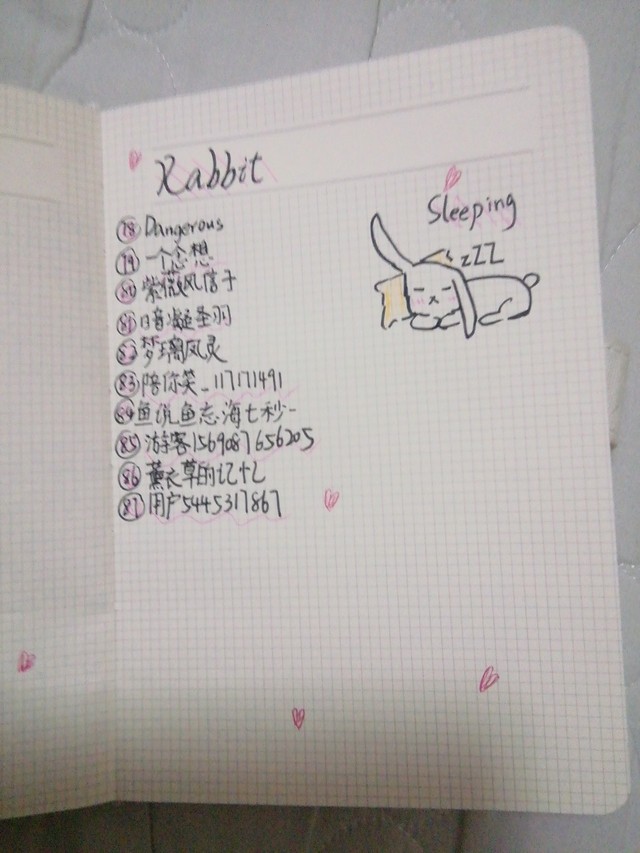 Rabbit
Sleeping
zZZ
78 Dangerous
79 一个念想
80 紫薇风信子
81 暗凝圣羽
82 梦璃风灵
83 陪你笑_117171491
84 鱼说鱼忘海七秒-
85 游客1569087656205
86 薰衣草的记忆
87 用户5445317867